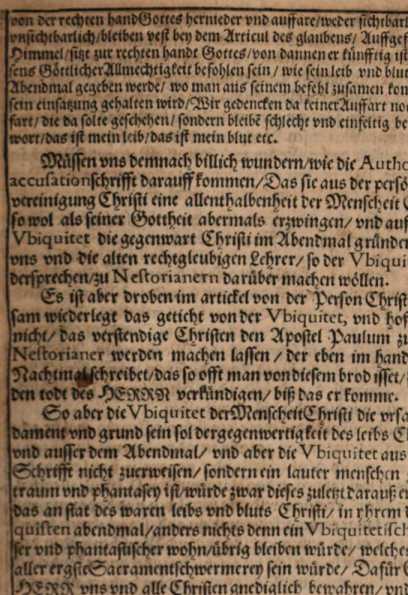 von der rechten hand Gottes hernieder vnd auffare/weder sichtbarl
vnsichtbarlich/bleiben vest bey dem Articul des glaubens/ Auffgef
Himmel/sitzt zur rechten handt Gottes/von dannen er künfftig ist
sens Göttlicher Allmechtigkeit befohlen sein / wie sein leib vnd blut
Abendmal gegeben werde/ wo man aus seinem befehl zusamen kom
sein einsatzung gehalten wird/Wir gedencken da keiner Auffart no
fart/die da solte geschehen/ sondern bleibē schlecht vnd einfeltig be
wort/das ist mein leib/das ist mein blut etc.
Müssen vns demnach billich wundern/wie die Autho
accusationschrifft darauff kommen/Das sie aus der persö
vereinigung Christi eine allenthalbenheit der Menscheit C
so wol als seiner Gottheit abermals erzwingen/ vnd auf
Vbiquitet die gegenwart Christi im Abendmal gründen
vns vnd die alten rechtgleubigen Lehrer/ so der Vbiqui
dersprechen/zu Nestorianern darüber machen wöllen.
Es ist aber droben im artickel von der Person Christ
sam wiederlegt das geticht von der Vbiquitet, vnd hof
nicht/ das verstendige Christen den Apostel Paulum zu
Nestorianer werden machen lassen / der eben im hand
Nachtmal schreibet/das so offt man von diesem brod isset/
den todt des HERRN verkündigen/ biß das er komme.
So aber die Vbiquitet der Menscheit Christi die vrsa
dament vnd grund sein sol der gegenwertigkeit des leibs C
vnd ausser dem Abendmal/ vnd aber die Vbiquitet aus
Schrifft nicht zuerweisen/ sondern ein lauter menschen
traum vnd phantasey ist/würde zwar dieses zuletzt daraus er
das an stat des waren leibs vnd bluts Christi/ in yhrem
quisten abendmal/anders nichts denn ein Vbiquitetisch
ser vnd phantastischer wohn/übrig bleiben würde/ welches
aller ergste Sacramentschwermerey sein würde/ Dafür
HERR vns vnd alle Christen gnediglich bewahren/ vnd